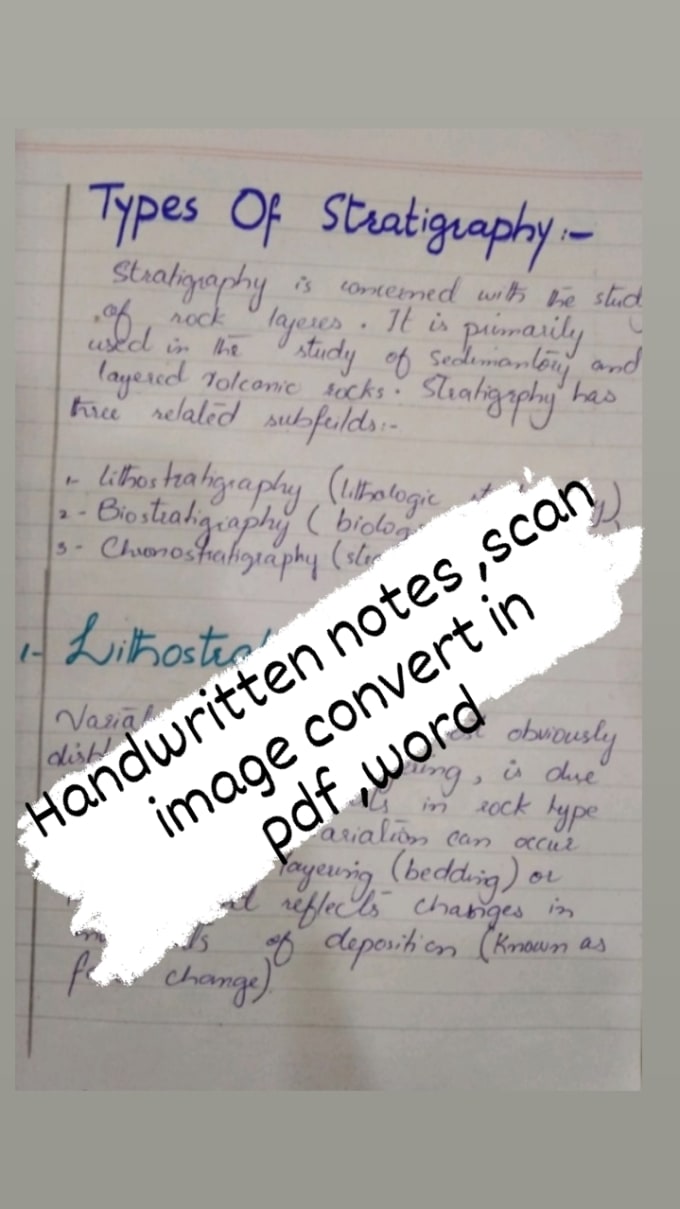 Types Of Stratigraphy:-
Stratigraphy is concerned with the stud
of rock layeres. It is primarily
used in the study of Sedimantory and
layered volcanic rocks. Stratigrphy has
three related subfeilds:-
1- lithostratigraphy (lithologic
2- Biostratigraphy ( biolog
3- Chronostratigraphy (str
1- Lithostra
Varia
obviously
dist
ering, is due
in rock type
ariation can occur
layering (bedding) or
reflects changes in
of deposition (Known as
change)
Handwritten notes ,scan
image convert in
pdf ,word